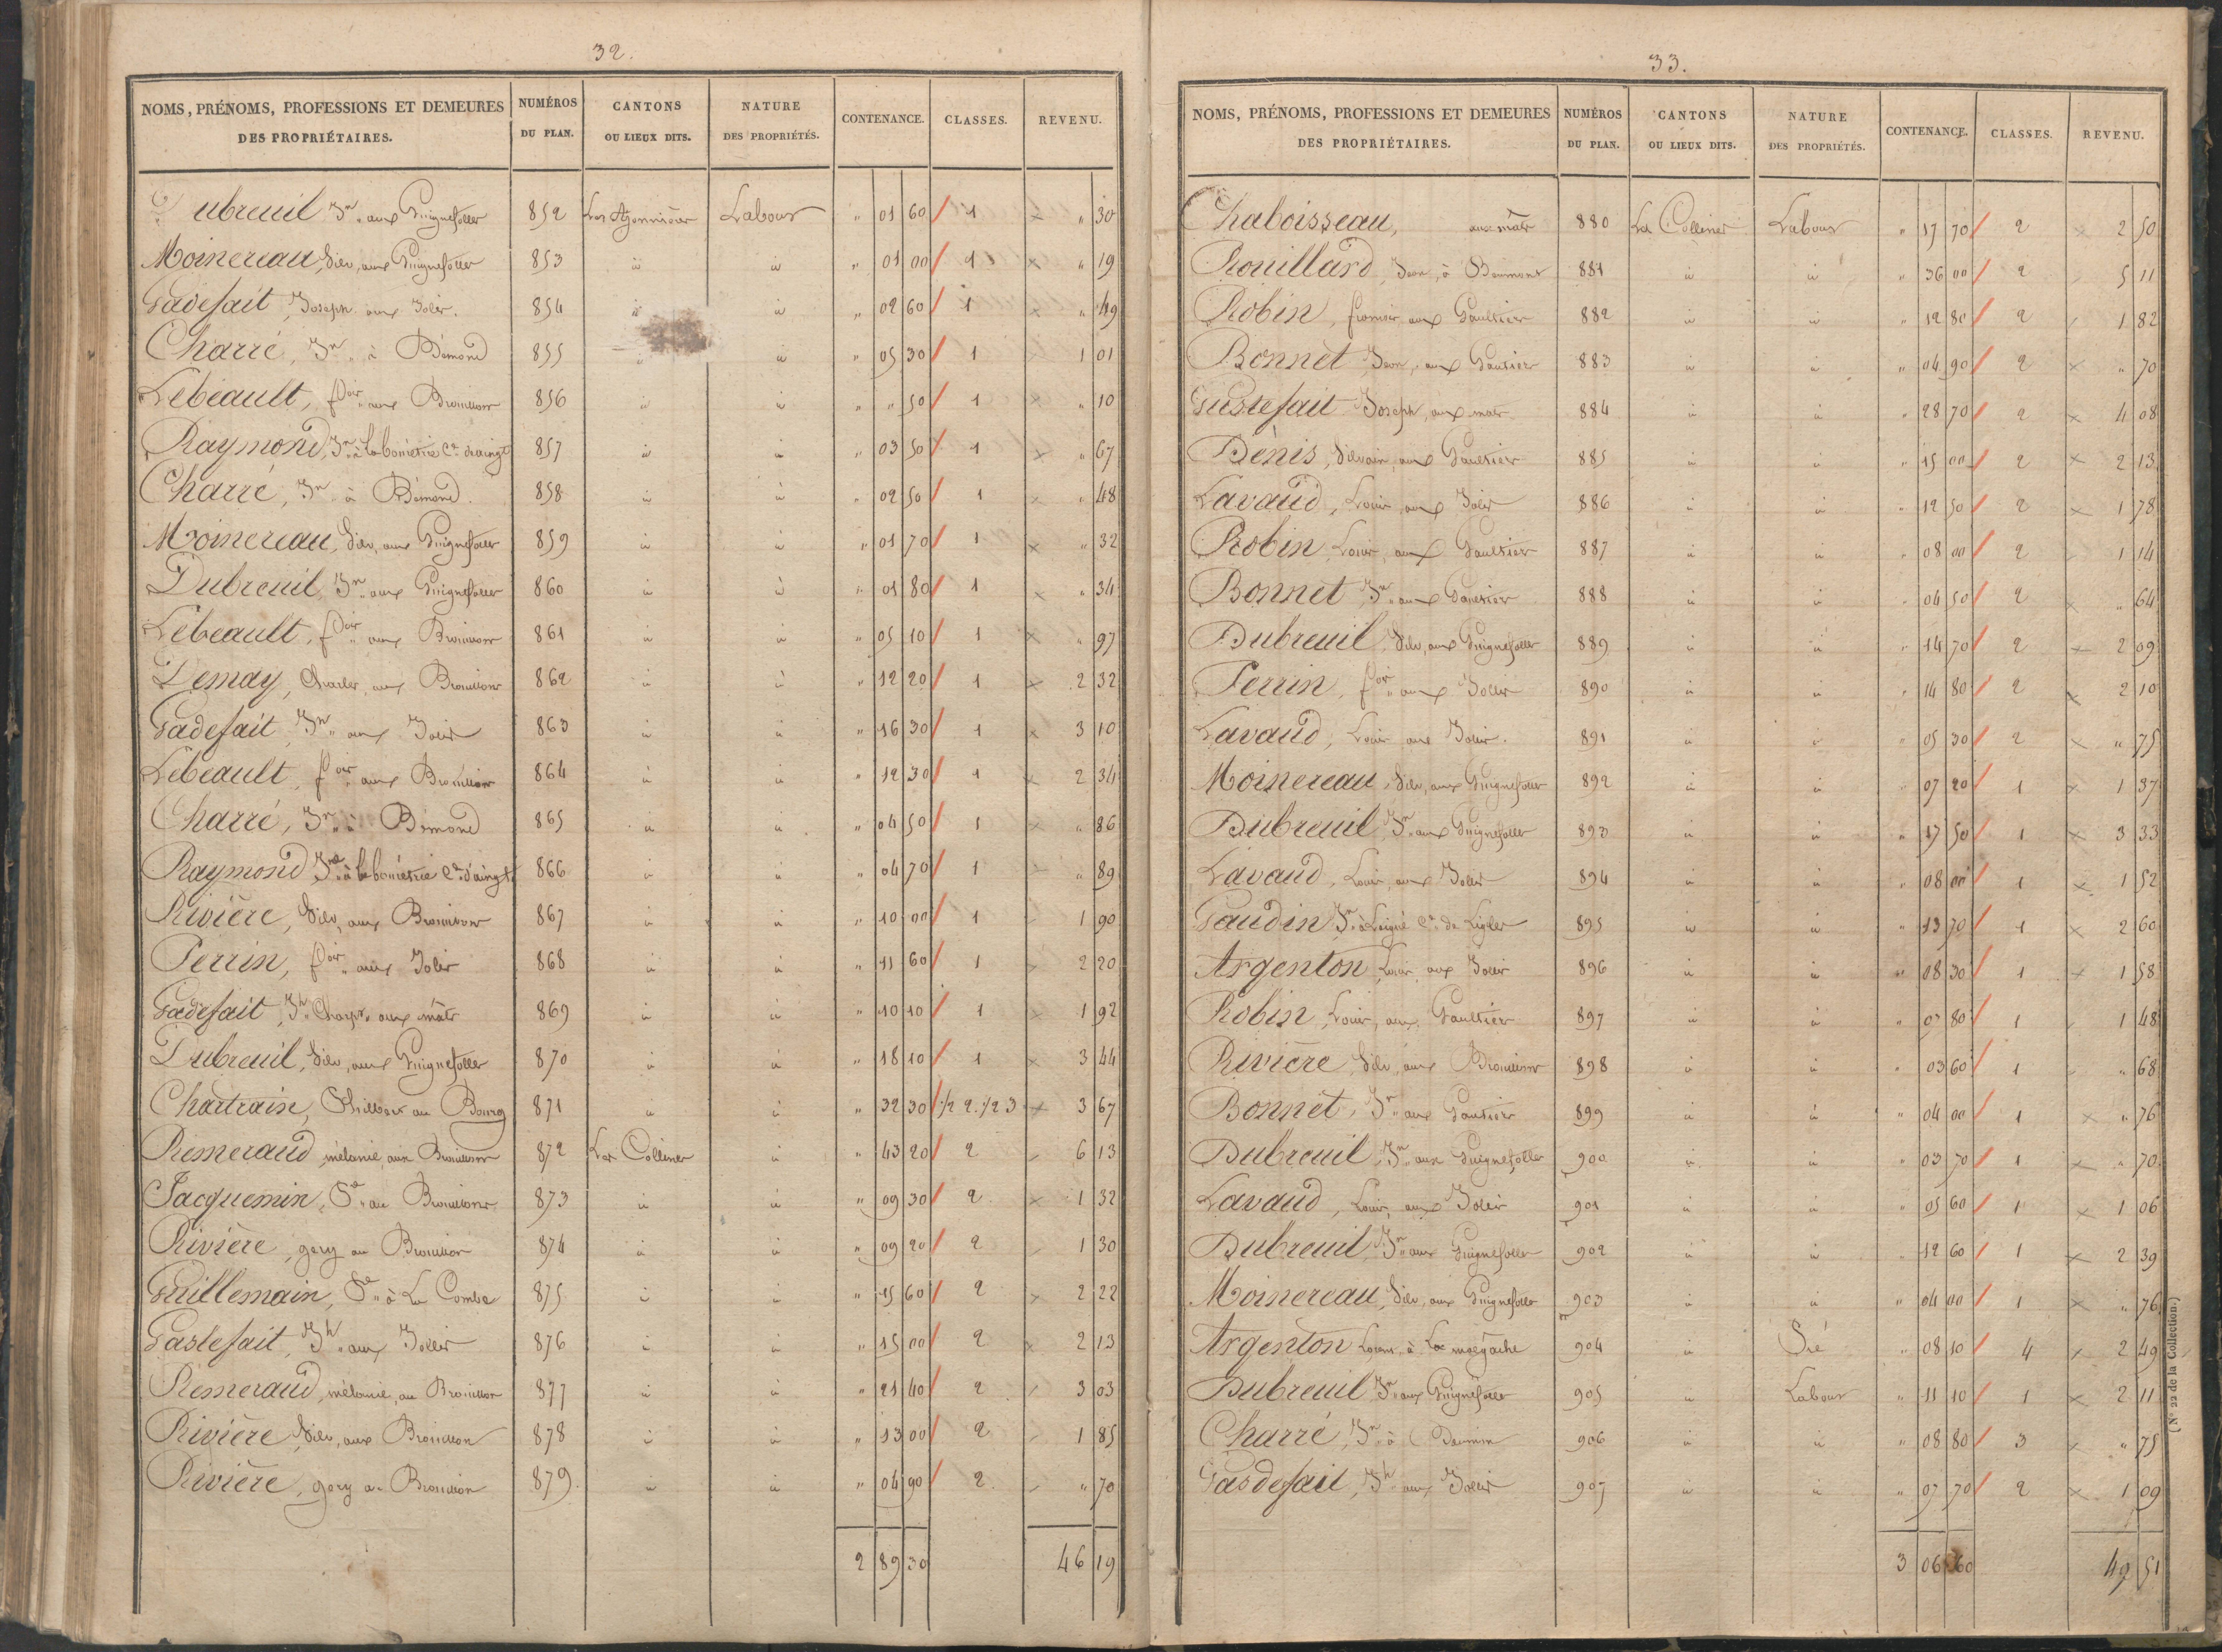 32.
NOMS, PRÉNOMS, PROFESSIONS ET DEMEURES DES PROPRIÉTAIRES. NUMÉROS DU PLAN. CANTONS OU LIEUX DITS. NATURE DES PROPRIÉTÉS. CONTENANCE. CLASSES. REVENU.
Dubreuil Jn aux 852 Les Labour " 01 60 1 " 30
Moinereau, Silv, aux 853 id id " 01 00 1 " 19
Gadefait, Joseph aux Jolis. 854 id id " 02 60 1 " 49
Charré, Jn à Bémond 855 " id " 05 30 1 1 01
Lebeault, fois aux Brouillons 856 id id " " 50 1 " 10
Raymond, Jn à la Cne 857 id id " 03 50 1 " 67
Charré, Jn à Bémond. 858 id id " 02 50 1 " 48
Moinereau, Silv, aux 859 id id " 01 70 1 " 32
Dubreuil, Jn aux 860 id id " 01 80 1 " 34
Lebeault, fois aux Brouillons 861 id id " 05 10 1 " 97
Demay, Charles, aux Brouillons 862 id id " 12 20 1 2 32
Gadefait, Jn aux Jolis 863 id id " 16 30 1 3 10
Lebeault, fois aux Brouillons 864 id id " 12 30 1 2 34
Charré, Jn à Bémond 865 id id " 04 50 1 " 86
Raymond, à la Cne 866 id id " 04 70 1 " 89
Rivière, Silv, aux Brouillons 867 id id " 10 00 1 1 90
Perrin, fois aux Jolis 868 id id " 11 60 1 2 20
Gadefait, Jh aux mâts 869 id id " 10 10 1 1 92
Dubreuil, Silv, aux 870 id id " 18 10 1 3 44
Chartraise, au Bourg 871 id id " 32 30 1/2 2. 1/2 3 3 67
Remeraud, mélanie, aux Brouillons 872 Les Collines id " 43 20 2 6 13
Jacquemin, au Brouillons 873 id id " 09 30 2 1 32
Rivière, gery au Brouillon 874 id id " 09 20 2 1 30
Guillemain, à La Combe 875 id id " 15 60 2 2 22
Gastefait, Jh aux Jolis 876 id id " 15 00 2 2 13
Remeraud, mélanie, au Brouillon 877 id id " 21 40 2 3 03
Rivière Silv, aux Brouillon 878 id id " 13 00 2 1 85
Rivière, gery au Brouillon 879. id id " 04 90 2 " 70
2 89 30 46 19
33.
NOMS, PRÉNOMS, PROFESSIONS ET DEMEURES DES PROPRIÉTAIRES. NUMÉROS DU PLAN. CANTONS OU LIEUX DITS. NATURE DES PROPRIÉTÉS. CONTENANCE. CLASSES. REVENU.
Chaboisseau, aux mâts 880 Les Collines Labour " 17 70 2 2 50
Rouillard, Jean, à 881 id id " 36 00 2 5 11
Robin, francois aux Gaultiers 882 id id " 12 80 2 1 82
Bonnet Jean, aux Gautiers 883 id id " 04 90 2 " 70
Gustefait Joseph, aux mats 884 id id " 28 70 2 4 08
Denis, Silvain, aux Gaultiers 885 id id " 15 00 2 2 13
Lavaud, Louis aux Jolis 886 id id " 12 50 2 1 78
Robin, Louis, aux Gaultiers 887 id id " 08 00 2 1 14
Bonnet Jn aux Gautiers 888 id id " 04 50 2 " 64
Dubreuil, Silv, aux 889 id id " 14 70 2 2 09
Perrin, fois aux Jollis 890 id id " 14 80 2 2 10
Lavaud, Louis aux Jolis. 891 id id " 05 30 2 " 75
Moinereau, Silv, aux 892 id id " 07 20 1 1 37
Dubreuil Jn aux 893 id id " 17 50 1 3 33
Lavaud, Louis, aux Jolis 894 id id " 08 00 1 1 52
Gaudin, Jn à Cne de 895 id id " 13 70 1 2 60
Argenton Louis aux Jolis 896 id id " 08 30 1 1 58
Robin, Louis, aux Gaultiers 897 id id " 07 80 1 1 48
Rivière, Silv aux Brouillons 898 id id " 03 60 1 " 68
Bonnet, Jn aux Gautiers 899 id id " 04 00 1 " 76
Dubreuil, Jn aux 900 id id " 03 70 1 " 70
Lavaud, Louis, aux Jolis 901 id id " 05 60 1 1 06
Dubreuil Jn aux 902 id id " 12 60 1 2 39
Moinereau, Silv, aux 903 id id " 04 00 1 " 76
Argenton Louis à La 904 id Pré " 08 10 4 2 49
Dubreuil Jn aux 905 id Labour " 11 10 1 2 11
Charré, Jn à 906 id id " 08 80 3 " 75
Gasdefait, Jh aux Jolis 907 id id " 07 70 2 1 09
3 06 60 49 51
(N° 22 de la Collection.)